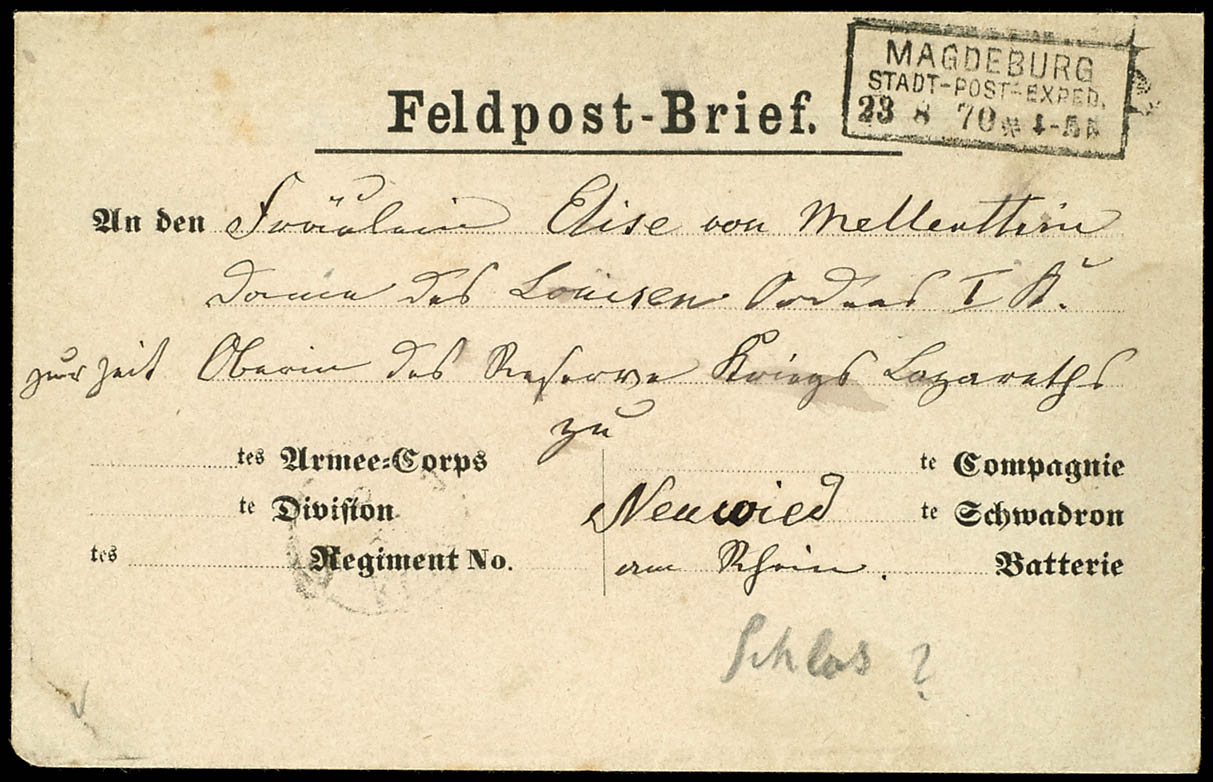 MAGDEBURG
STADT-POST-EXPED.
23 8 70 * 4-5 N
Feldpost-Brief.
An den Fräulein Elise von Mellenthin
Dame des Louisen Ordens I Kl.
zur Zeit Oberin des Reserve Kriegs Lazareths
zu
tes Armee-Corps
te Compagnie
te Division
Neuwied
te Schwadron
tes Regiment No.
am Rhein.
Batterie
Schlos ?